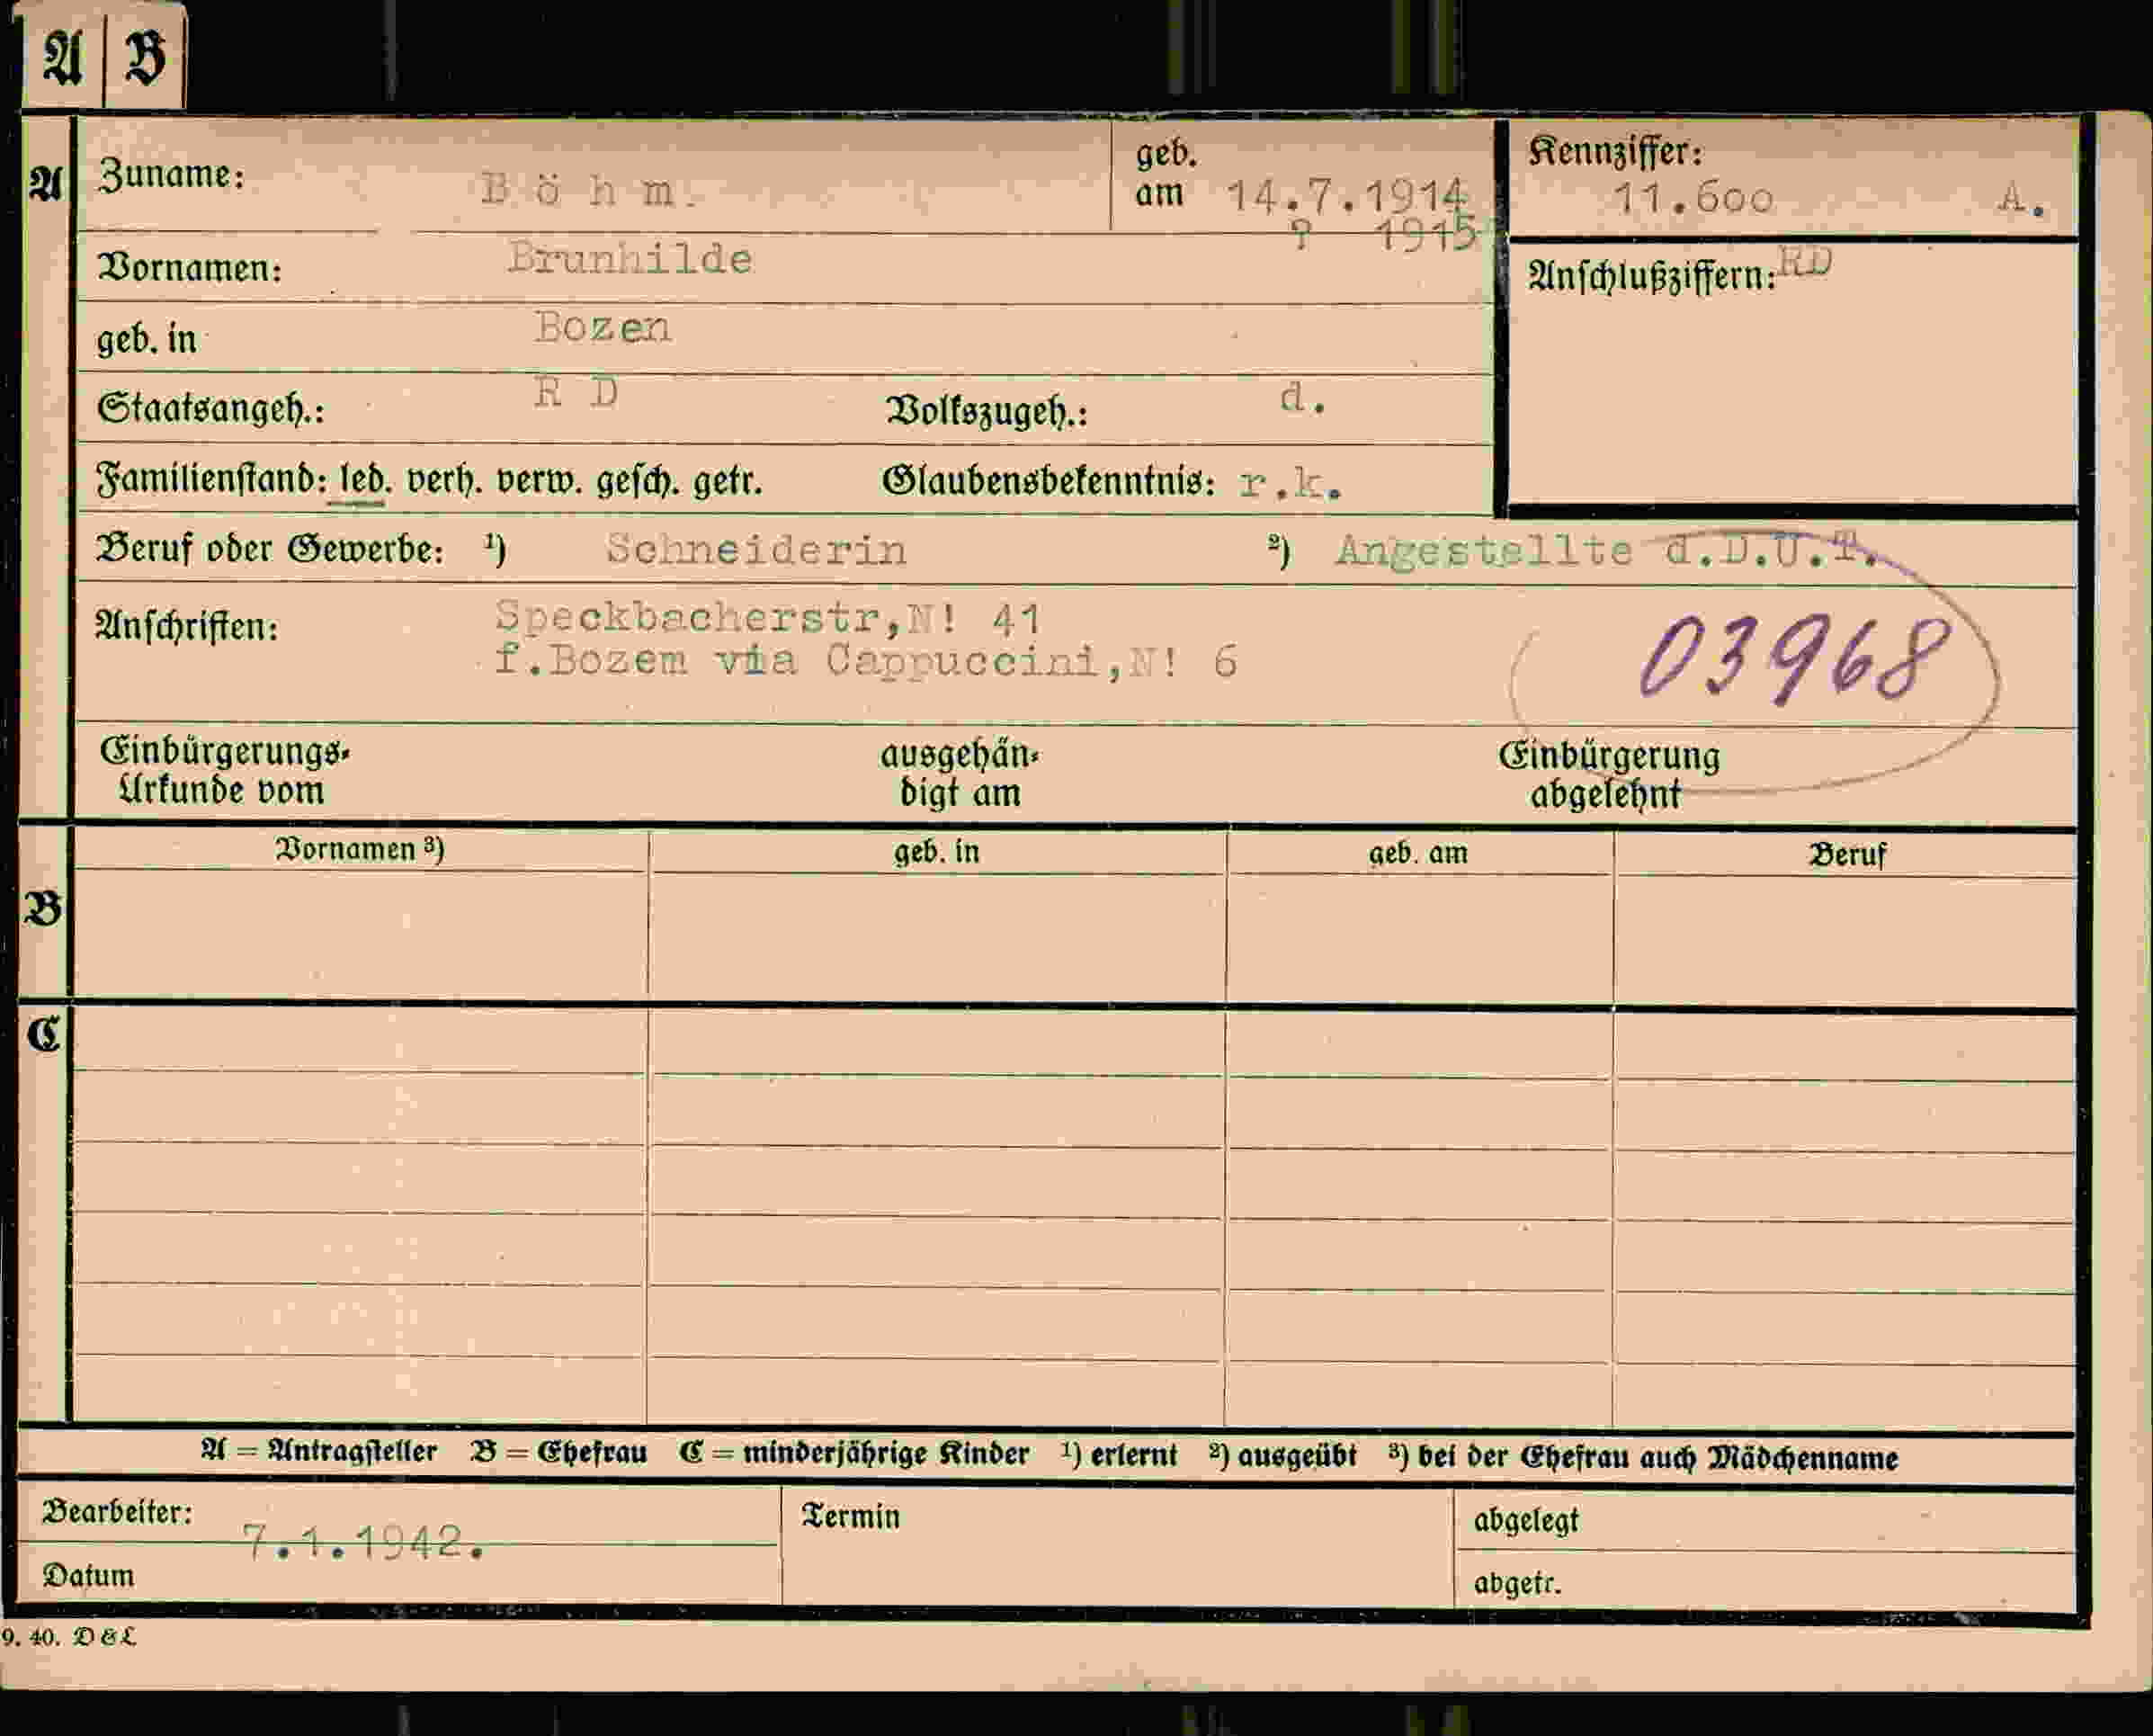 A B
A Zuname: B ö h m. geb. am 14.7.1914 Kennziffer: 11.600 A.
? 1915
Vornamen: Brunhilde Anschlußziffern: RD
geb. in Bozen
Staatsangeh.: R D Volkszugeh.: d.
Familienstand: led. verh. verw. gesch. getr. Glaubensbekenntnis: r.k.
Beruf oder Gewerbe: ¹) Schneiderin ²) Angestellte d.D.U.T.
Anschriften: Speckbacherstr,N! 41
f.Bozem via Cappuccini,N! 6
03968
Einbürgerungs- ausgehän- Einbürgerung
Urkunde vom digt am abgelehnt
Vornamen ³) geb. in geb. am Beruf
B
C
A = Antragsteller B = Ehefrau C = minderjährige Kinder ¹) erlernt ²) ausgeübt ³) bei der Ehefrau auch Mädchenname
Bearbeiter: Termin abgelegt
7.1.1942.
Datum abgetr.
9. 40. D & L